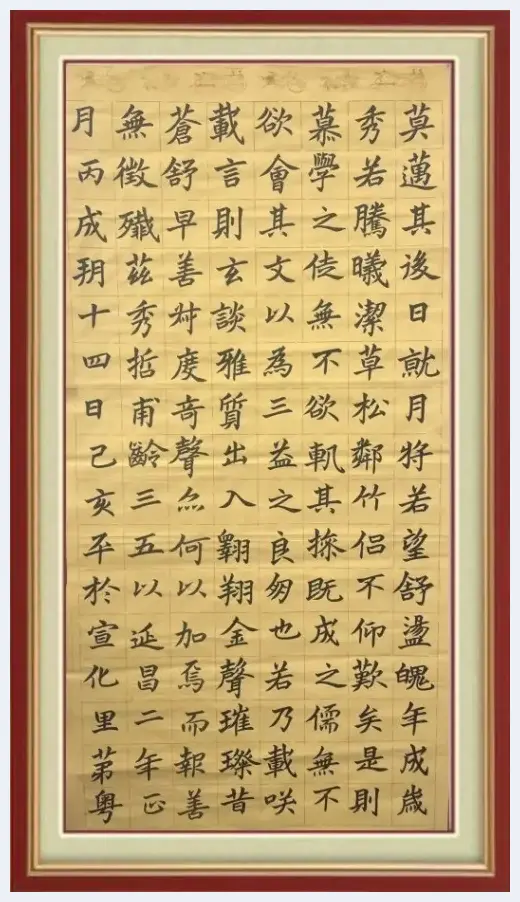 莫邁其後日就月將若望舒盪魄年成歲
秀若騰曦潔草松鄰竹侶不仰歎矣是則
慕學之徒無不欲軌其操既成之儒無不
欲會其文以為三益之良朋也若乃載咲
載言則玄談雅質出入翱翔金聲璀璨昔
蒼舒早善舛度奇聲亦何以加焉而報善
無徵殲茲秀哲甫齡三五以延昌二年正
月丙戌朔十四日己亥卒於宣化里第粤